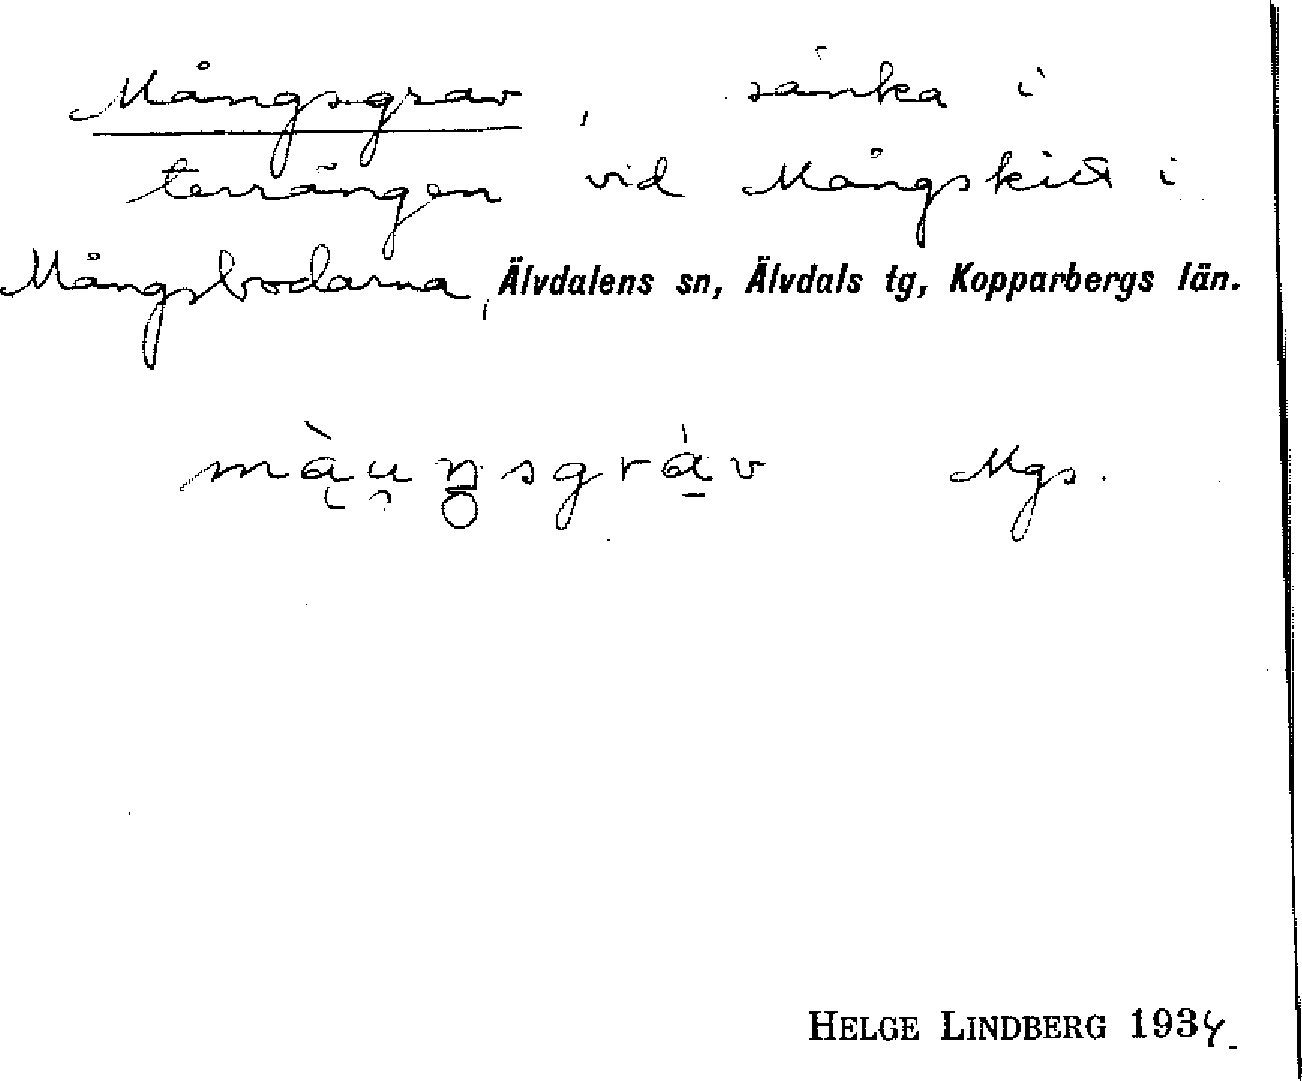 Mångsgrav, sänka i
terrängen vid Mångskidt i
Mångsbodarna, Älvdalens sn, Älvdals tg, Kopparbergs län.
mą̀u̯ŋ̥sgrá̱v Mgs.
HELGE LINDBERG 1934